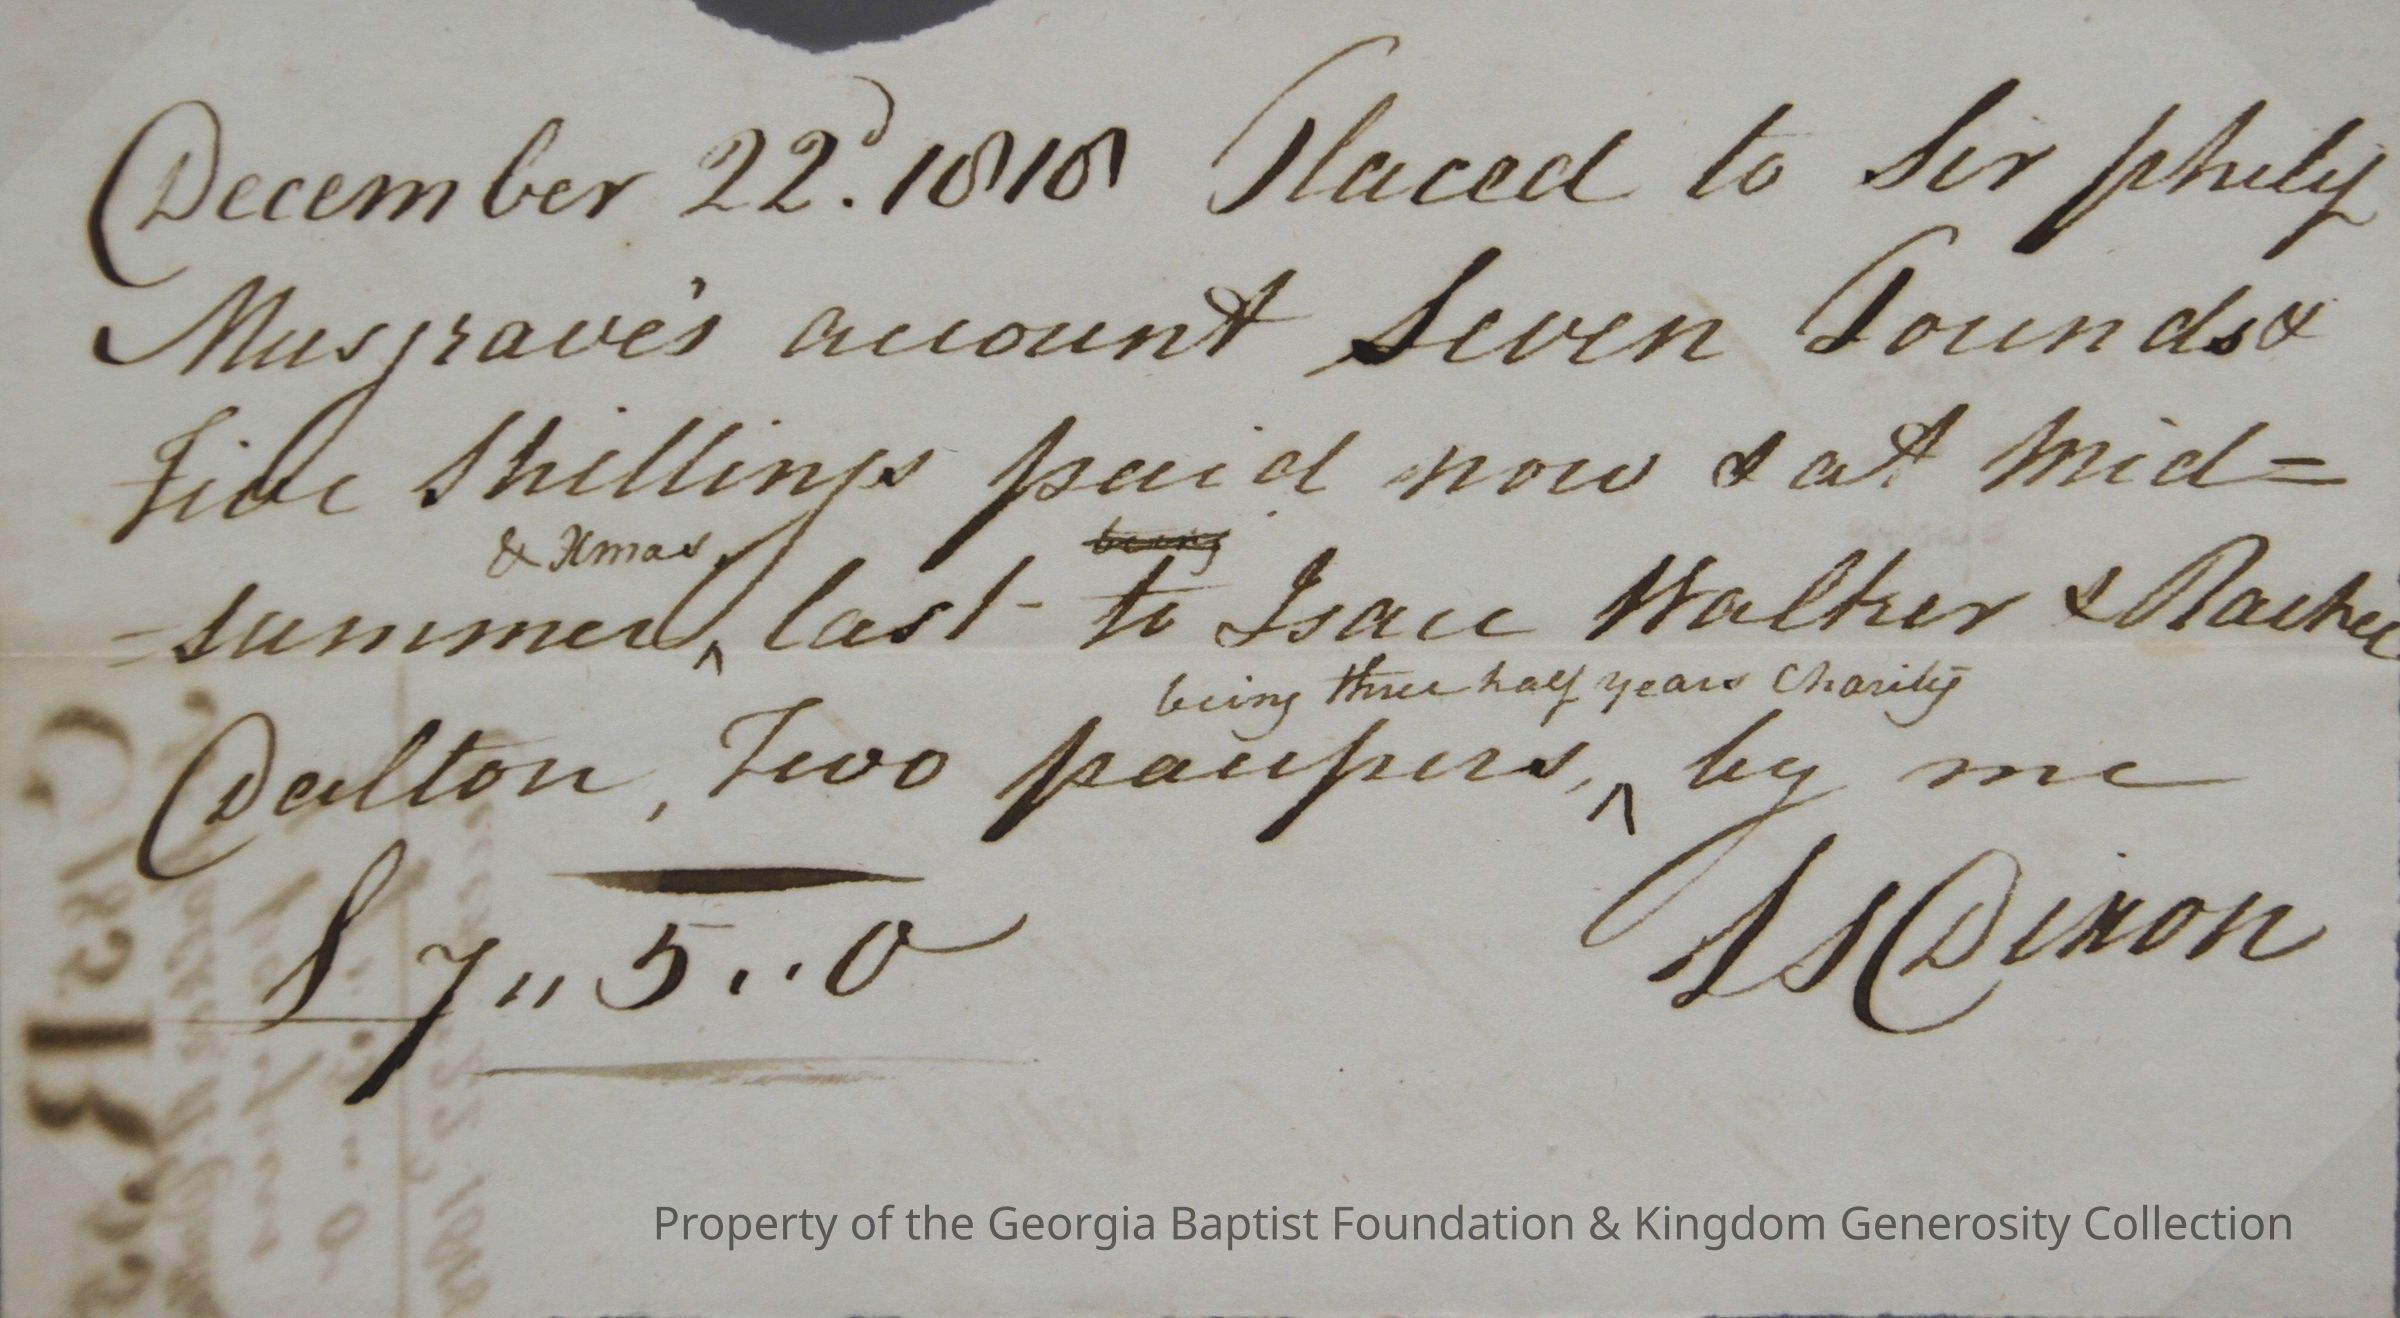 December 22d. 1818 Placed to Sir Philip
Musgrave's account Seven Pounds &
Five Shillings paid now & at Mid=
& Xmas being
=summer ^ last to Isaac Walker & Rachel
being three half years Charity
Dalton, Two paupers, ^ by me
£ 7 " 5 .. 0
Dixon
Property of the Georgia Baptist Foundation & Kingdom Generosity Collection